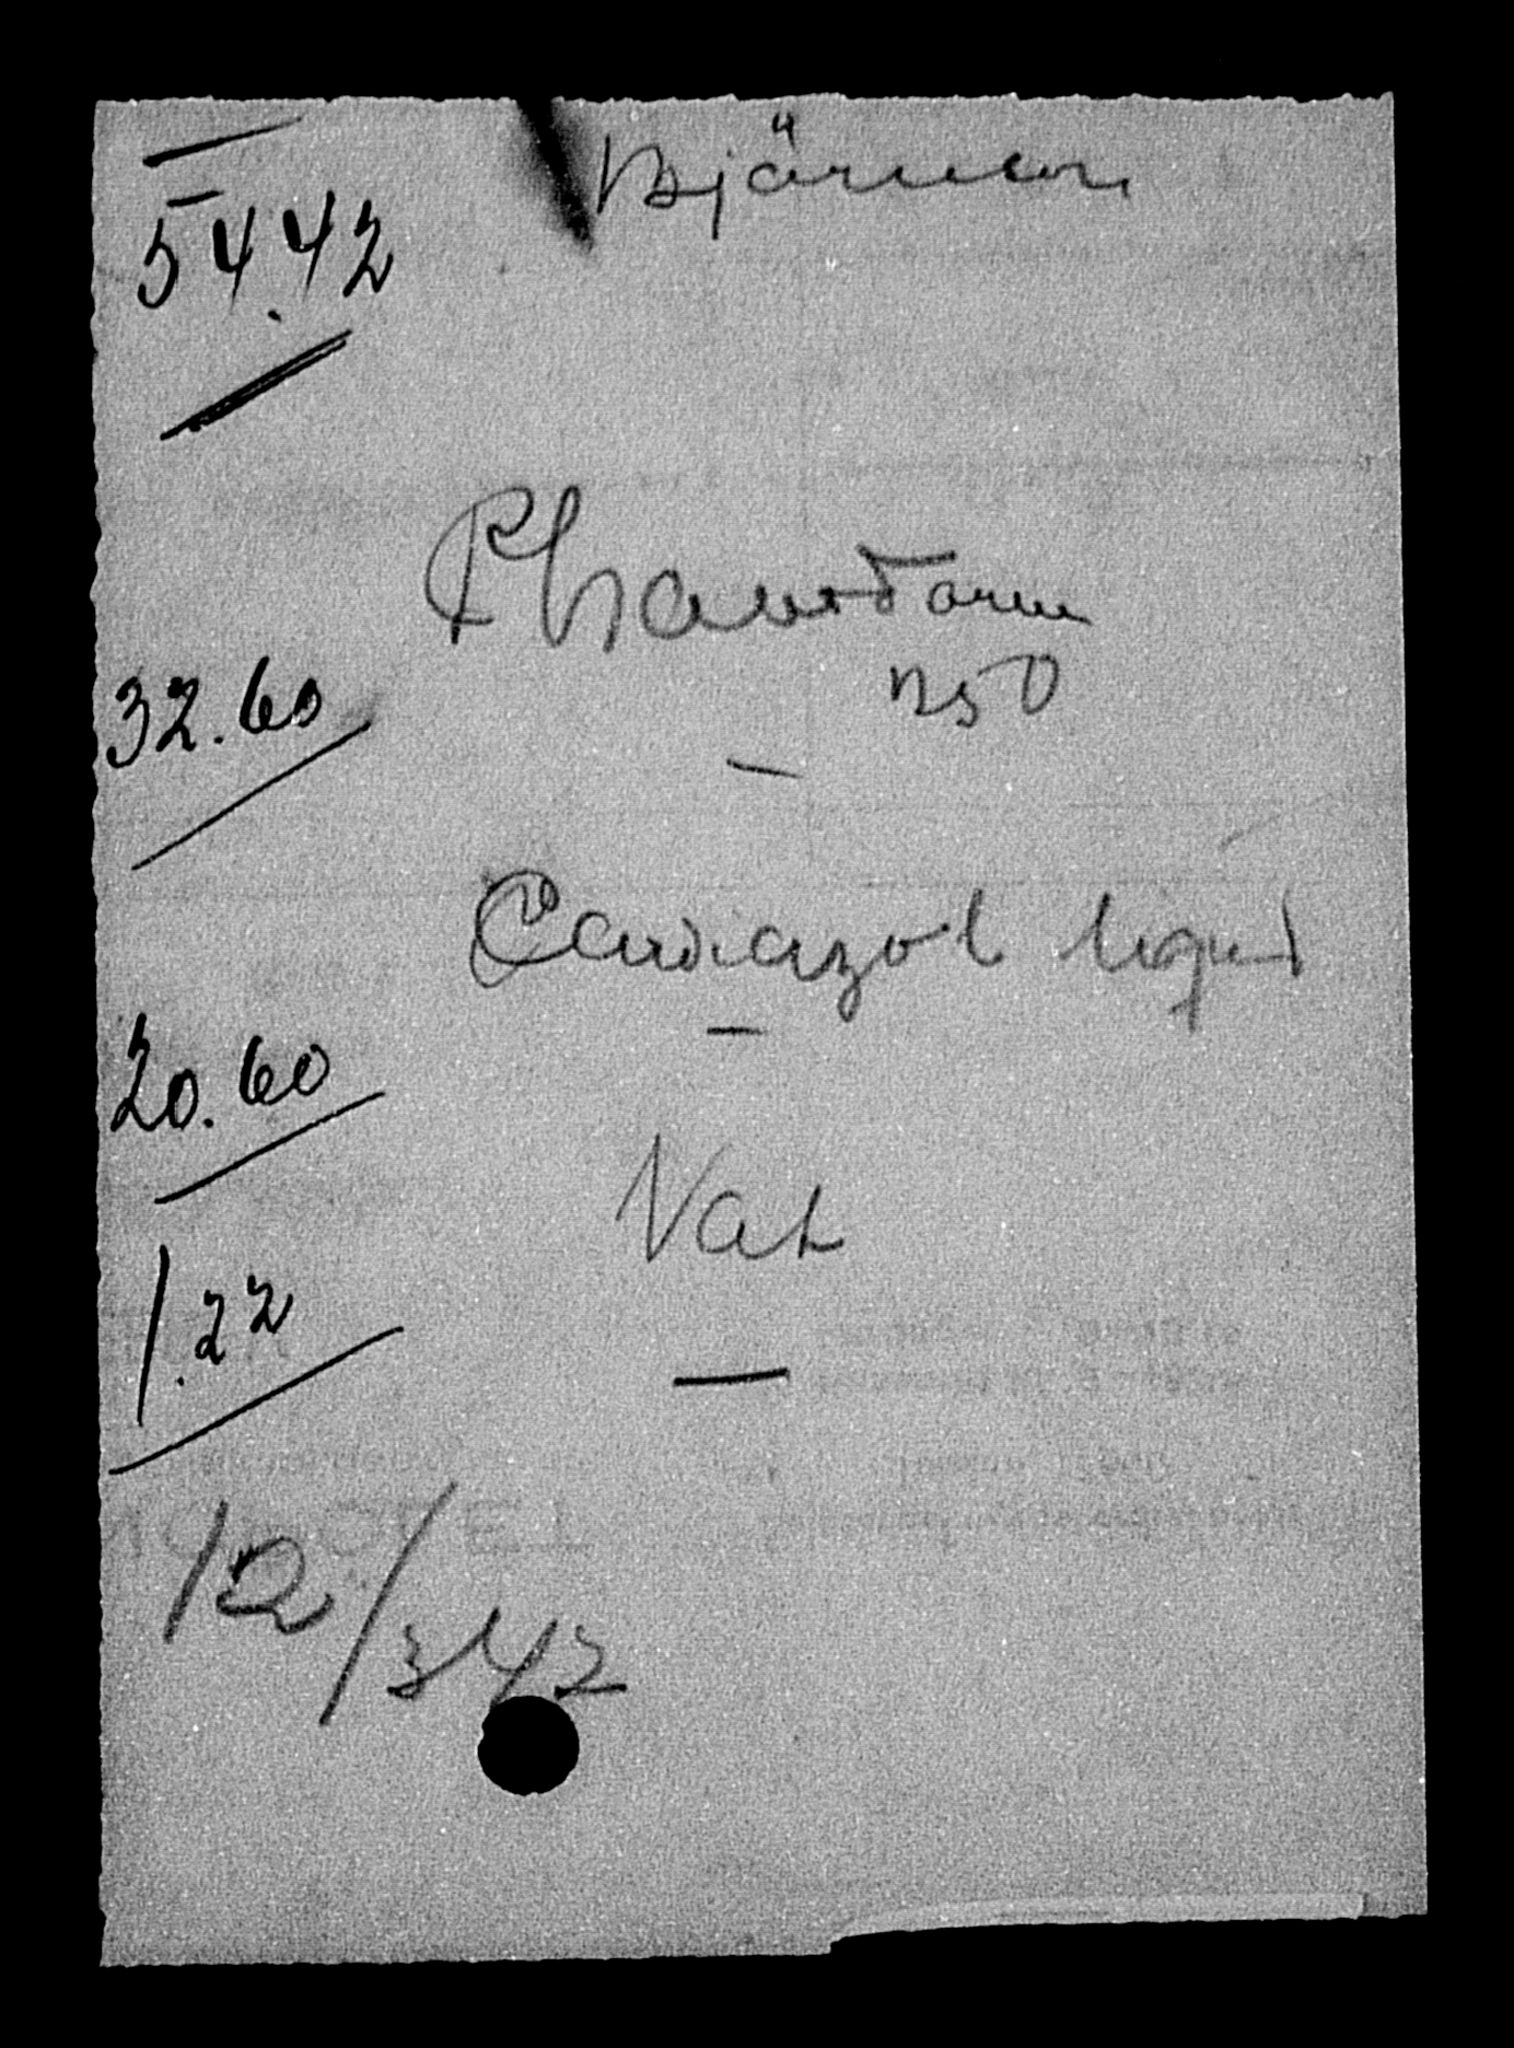 Björnson
54.42
Phanodorm
250
32.60
Cardiazol liquid
20.60
Vat
1.22
12/342